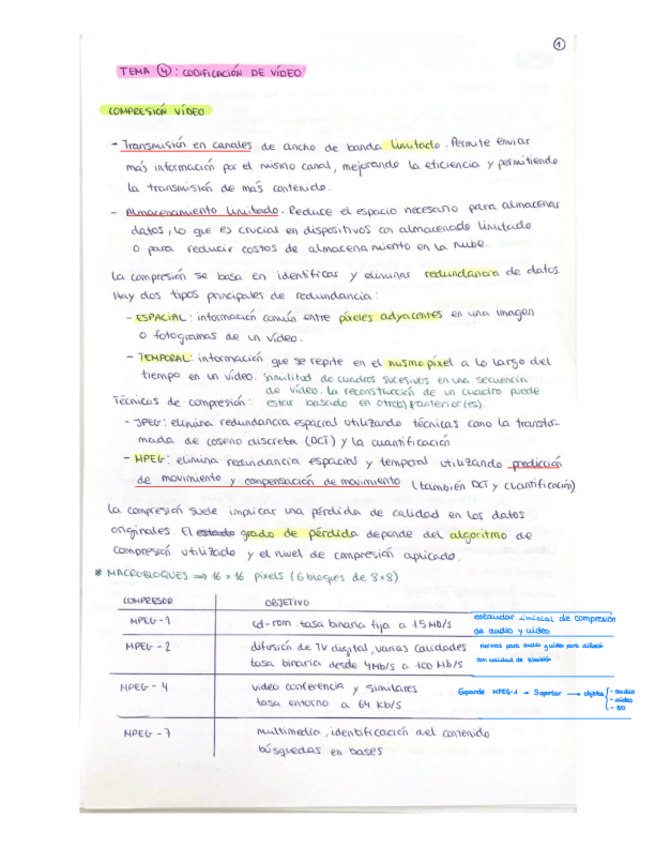 1
TEMA 4: CODIFICACIÓN DE VÍDEO
COMPRESIÓN VÍDEO
- Transmisión en canales de ancho de banda limitado. Permite enviar
más información por el mismo canal, mejorando la eficiencia y permitiendo
la transmisión de más contenido.
- Almacenamiento limitado. Reduce el espacio necesario para almacenar
datos, lo que es crucial en dispositivos con almacenado limitado
o para reducir costos de almacenamiento en la nube.
La compresión se basa en identificar y eliminar redundancia de datos.
Hay dos tipos principales de redundancia:
- ESPACIAL: información común entre píxeles adyacentes en una imagen
o fotogramas de un vídeo.
- TEMPORAL: información que se repite en el mismo píxel a lo largo del
tiempo en un vídeo. Similitud de cuadros sucesivos en una secuencia
de vídeo. La reconstrucción de un cuadro puede
Técnicas de compresión: estar basado en otro(s) anterior(es).
- JPEG: elimina redundancia espacial utilizando técnicas como la transfor-
mada de coseno discreta (DCT) y la cuantificación
- MPEG: elimina redundancia espacial y temporal utilizando predicción
de movimiento y compensación de movimiento (también DCT y cuantificación)
La compresión suele implicar una pérdida de calidad en los datos
originales. El estado grado de pérdida depende del algoritmo de
compresión utilizado y el nivel de compresión aplicado.
* MACROBLOQUES ⇒ 16 x 16 pixels (6 bloques de 8x8)
COMPRESOR OBJETIVO
MPEG-1 cd-rom. tasa binaria fija a 1.5Mb/s estándar inicial de compresión
de audio y video
MPEG-2 difusión de TV digital, varias calidades Normas para audio y video para difusión
tasa binaria desde 4Mb/s a 100 Mb/s con calidad de televisión
MPEG-4 video conferencia y similares Expande MPEG-1 → Soportar → objetos { - audio
- video
- 3D
tasa entorno a 64 Kb/s
MPEG-7 multimedia, identificación del contenido
búsquedas en bases